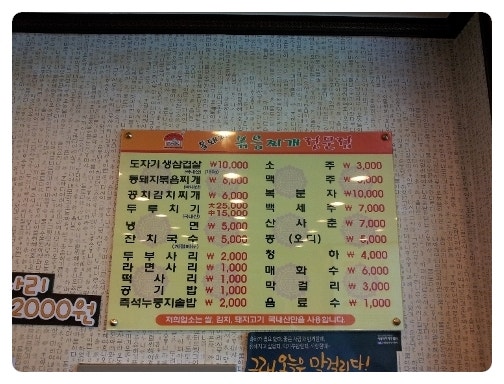 볶음찌개 전문점
도자기 생삼겹살 ₩10,000 소주 ₩ 3,000
통돼지볶음찌개 ₩ 6,000 맥주 ₩
꽁치김치찌개 ₩ 6,000 복분자 ₩10,000
두루치기 大25,000 中15,000 백세주 ₩ 7,000
냉면 ₩ 5,000 산사춘 ₩ 7,000
잔치국수 ₩ 5,000 뽕 (오디) ₩
두부사리 ₩ 2,000 청하 ₩ 4,000
라면사리 ₩ 1,000 매화수 ₩ 6,000
떡사리 ₩ 1,000 막걸리 ₩ 3,000
공기밥 ₩ 1,000 음료수 ₩ 1,000
즉석누룽지솥밥 ₩ 2,000
저희업소는 쌀, 김치, 돼지고기 국내산만을 사용합니다.
사리
2000원
그래, 오늘은 막걸리다!